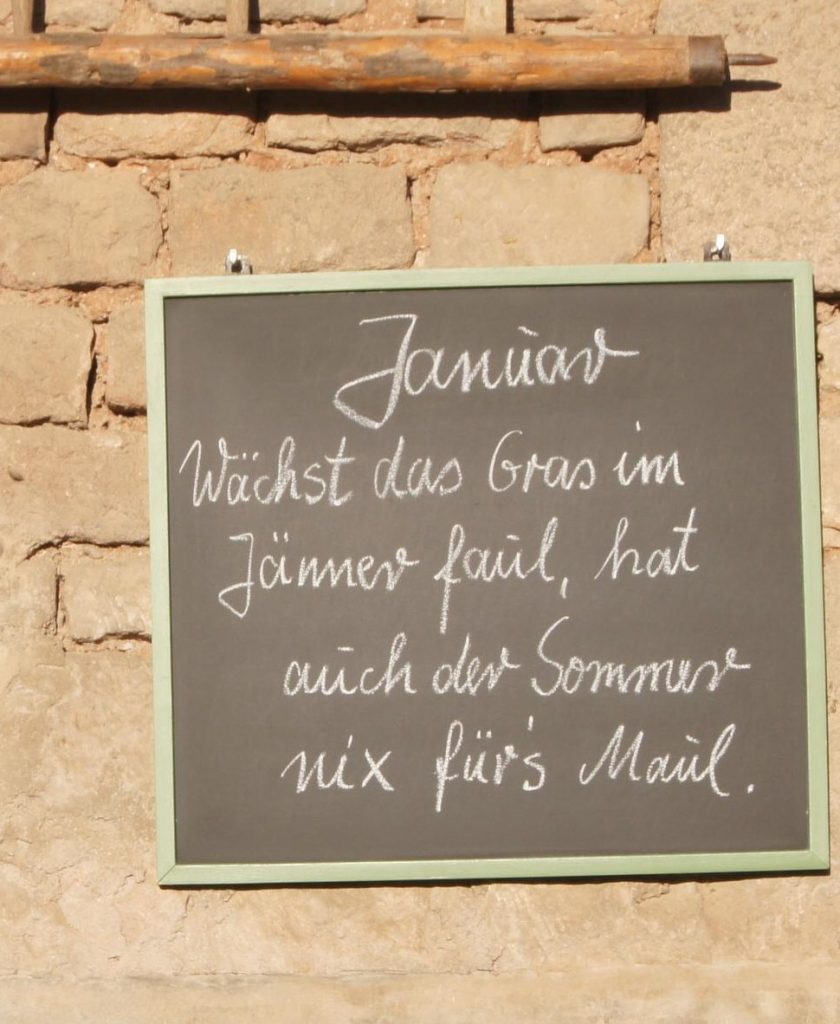 Januar
Wächst das Gras im
Jänner faul, hat
auch der Sommer
nix für's Maul.